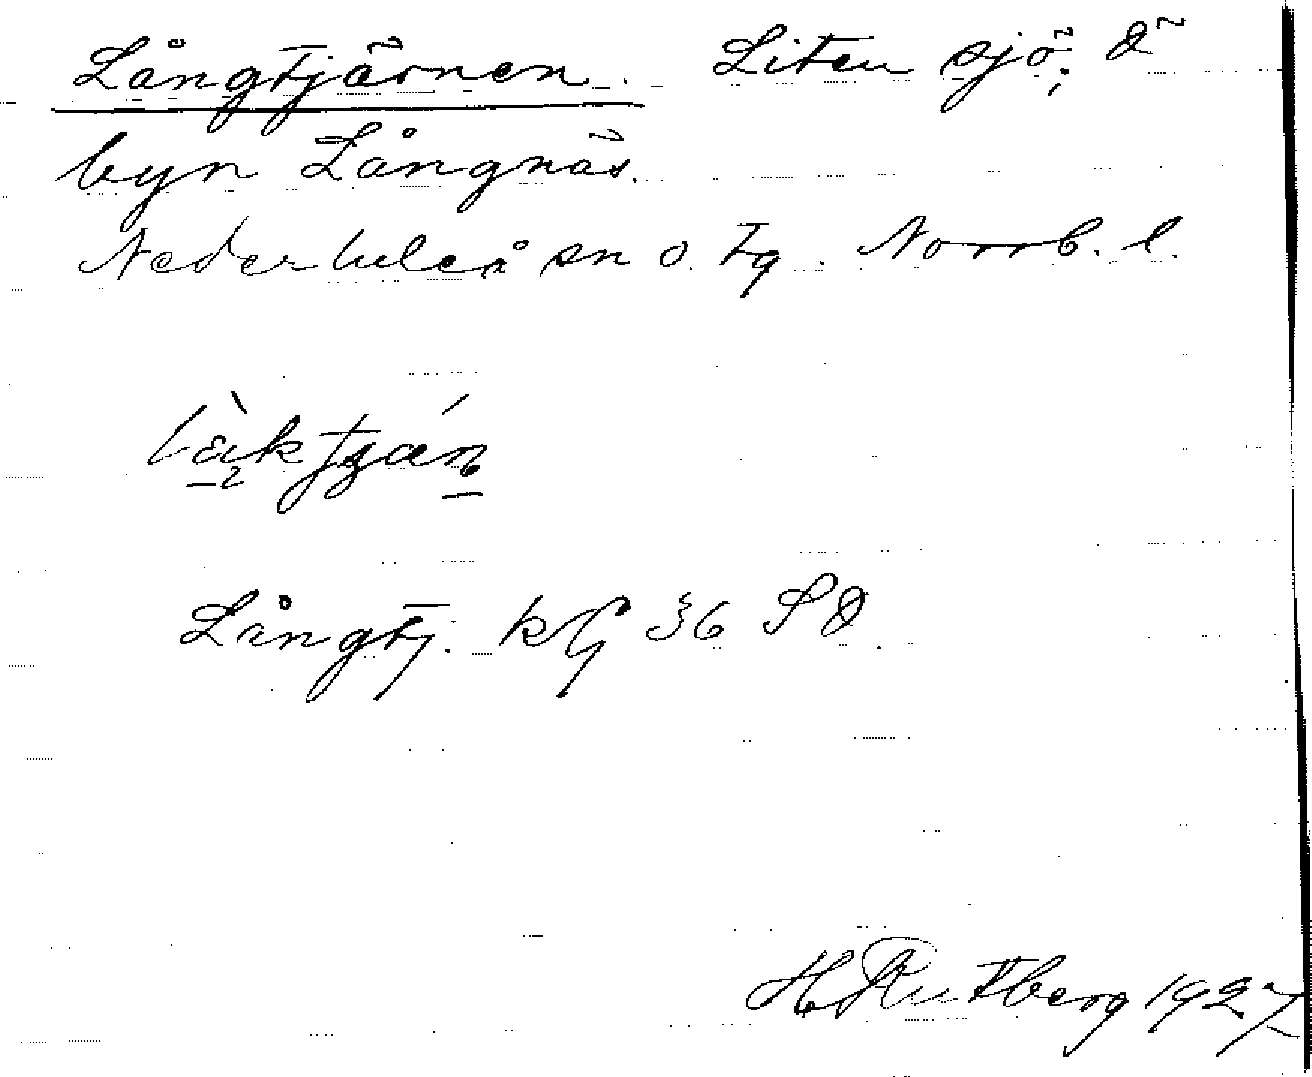 Långtjärnen. Liten sjö; Ö
byn Långnäs.
Nederluleå sn o. tg. Norrb. l.
Långtj. kfl 36 SO.
H Rutberg 1927